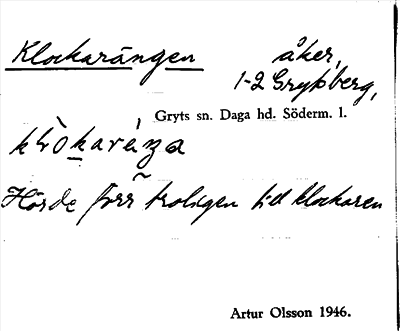 Klockarängen åker,
1-2 Grytsberg,
Gryts sn. Daga hd. Söderm. l.
Hörde förr troligen till klockaren
Artur Olsson 1946.